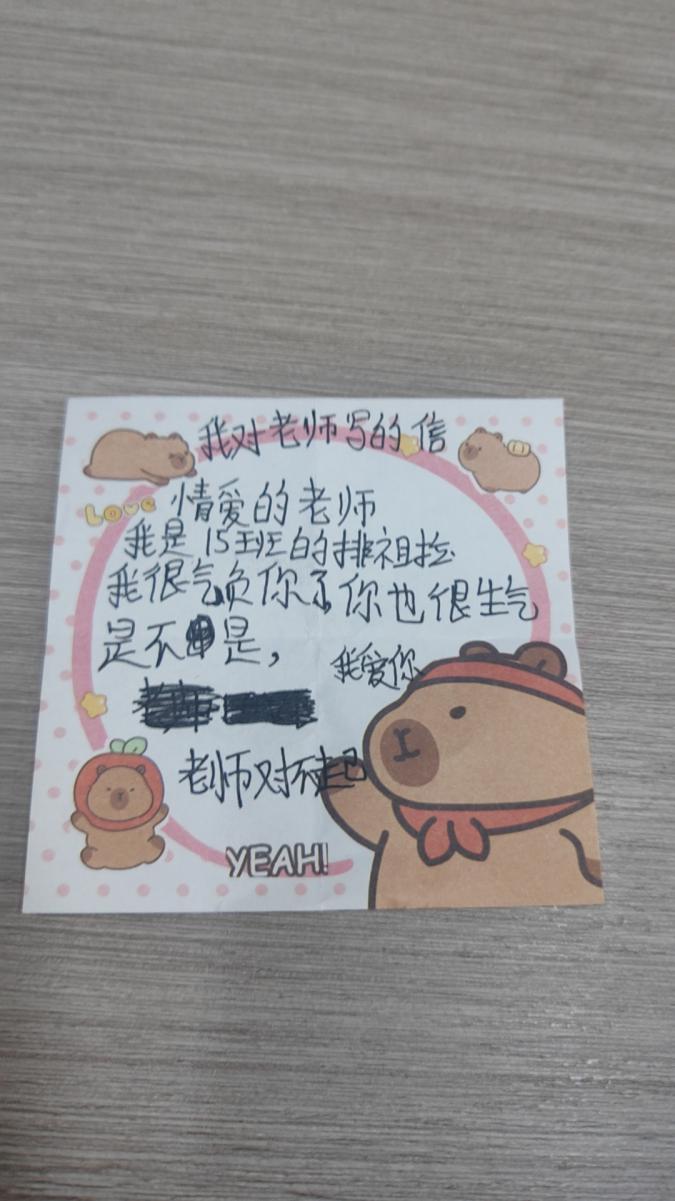 我对老师写的信
Love
情爱的老师
我是15班的排祖拉
我很气负你了,你也很生气
是不是,
我爱你
老师对不起
YEAH!